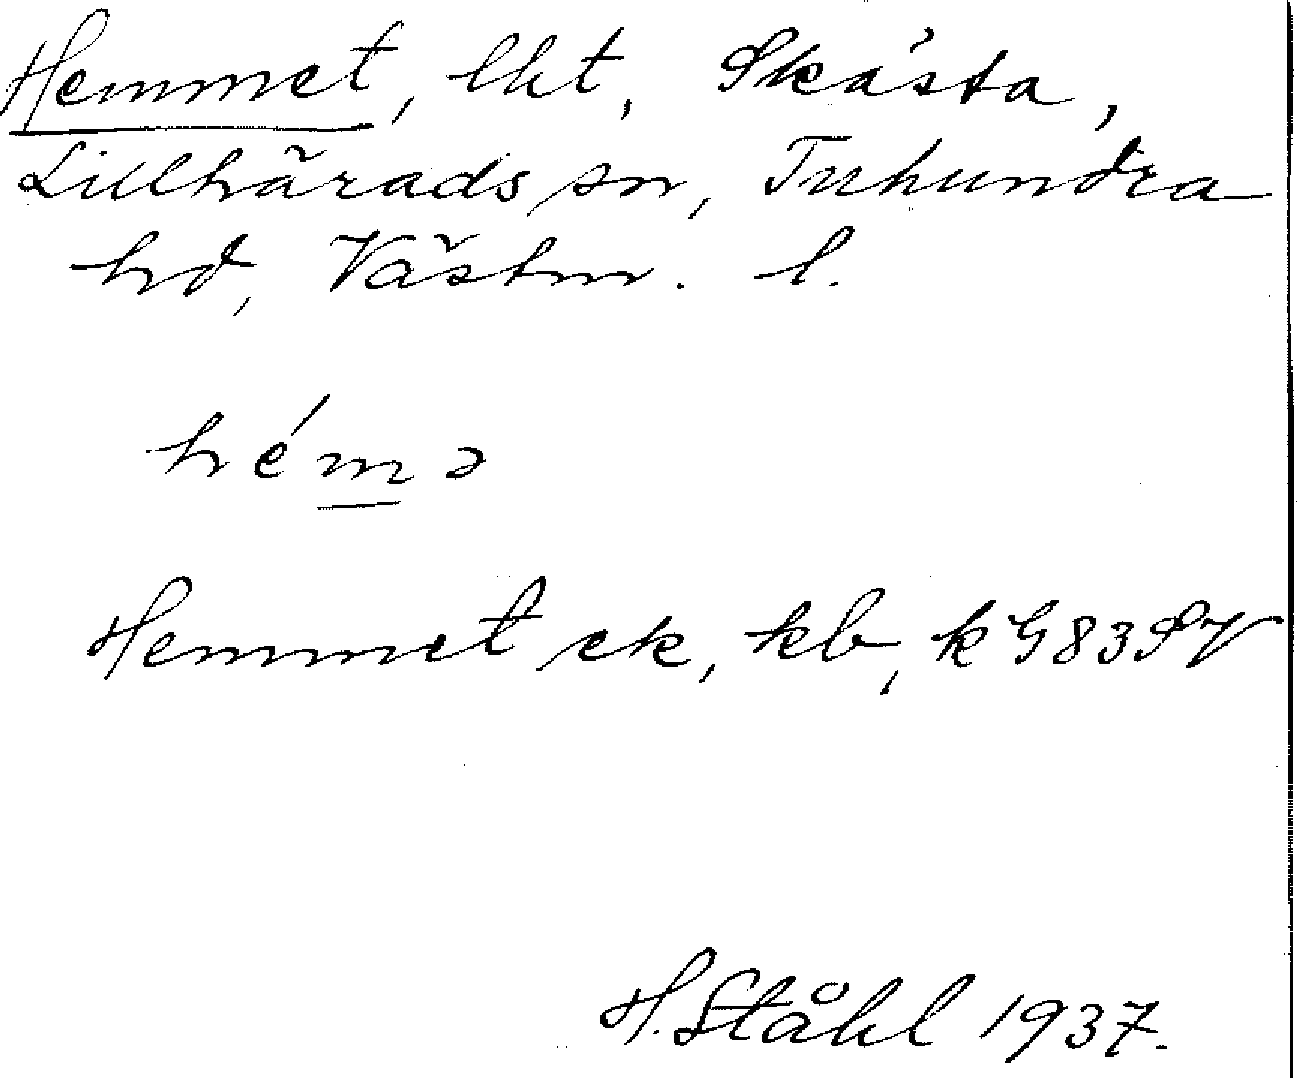 Hemmet, lht, Skästa,
Lillhärads sn, Tuhundra
hd, Västm. l.
hémə
Hemmet ek, kb, k G83SV
H. Ståhl 1937.